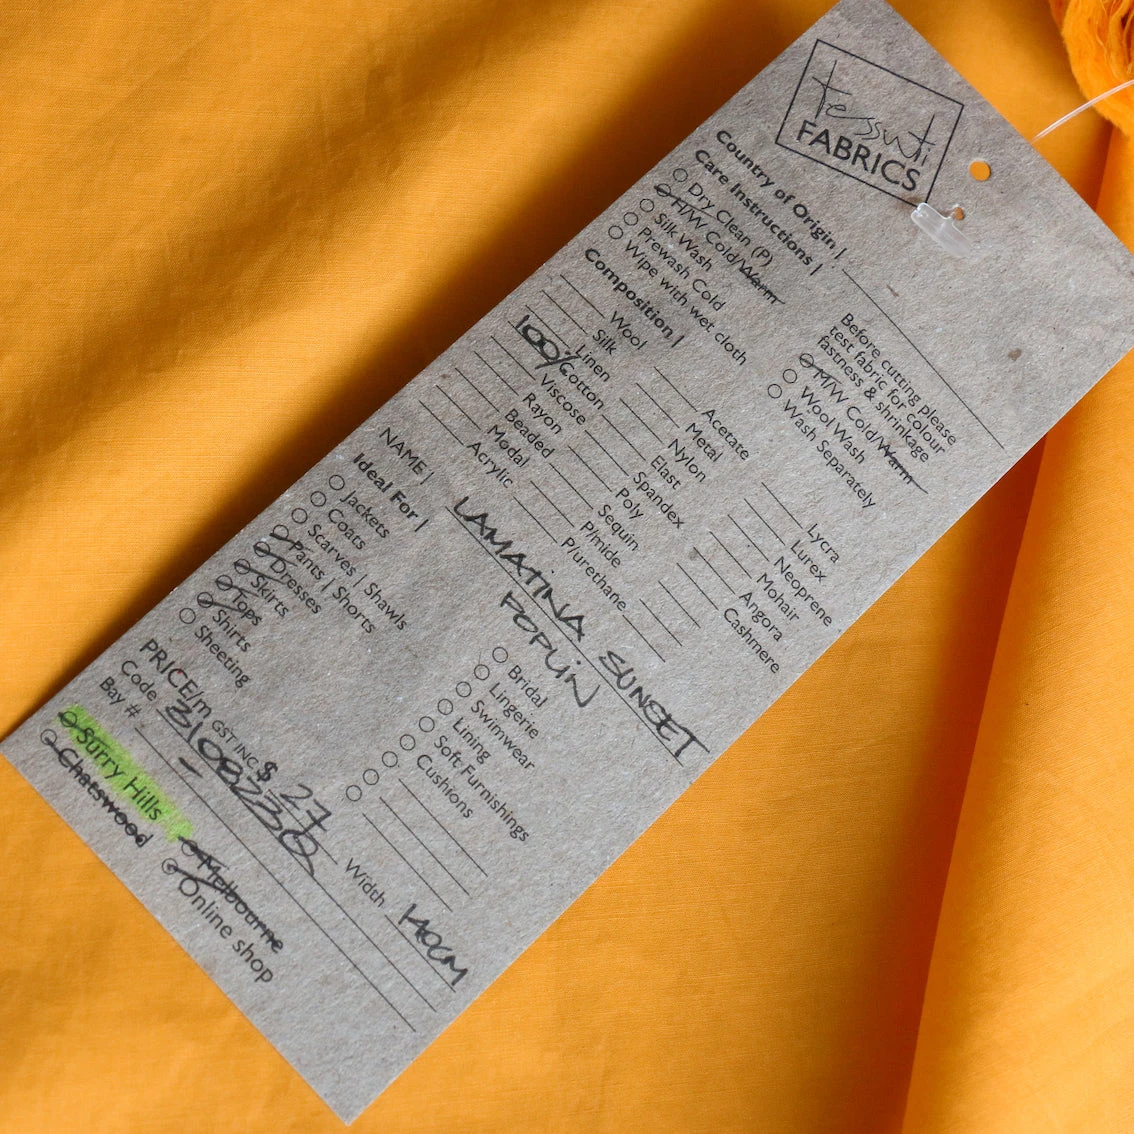 tessuti
FABRICS
Country of Origin |
Care Instructions |
Dry Clean (P)
H/W Cold/Warm
Silk Wash
Prewash Cold
Wipe with wet cloth
Before cutting please
test fabric for colour
fastness & shrinkage
M/W Cold/Warm
Wool Wash
Wash Separately
Composition |
Wool
Silk
Linen
100% Cotton
Viscose
Rayon
Beaded
Modal
Acrylic
Acetate
Metal
Nylon
Elast
Spandex
Poly
Sequin
P/mide
P/urethane
Lycra
Lurex
Neoprene
Mohair
Angora
Cashmere
NAME | LAMATINA SUNSET
POPLIN
Ideal For |
Jackets
Coats
Scarves | Shawls
Pants | Shorts
Dresses
Skirts
Tops
Shirts
Sheeting
Bridal
Lingerie
Swimwear
Lining
Soft Furnishings
Cushions
PRICE/m GST INC. $ 27
Width 140CM
Code
Bay # -
Surry Hills
Chatswood
Melbourne
Online shop